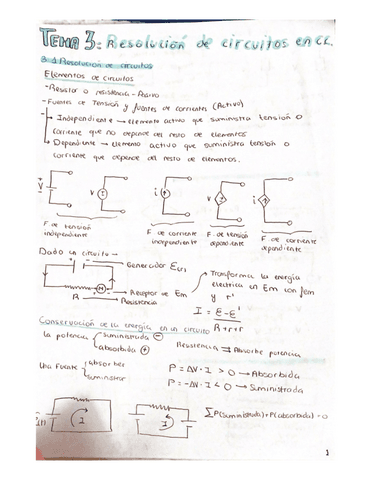 TEMA 3: Resolución de circuitos en CC.
3.1 Resolución de circuitos
Elementos de circuitos
- Resistor o resistencia - Pasivo
- Fuentes de Tensión y fuentes de corrientes (Activo)
- Independiente → elemento activo que suministra tensión o
corriente que no depende del resto de elementos
→ Dependiente → elemento activo que suministra tensión o
corriente que depende del resto de elementos.
V
v
i
v
i
F de tensión
independiente
F de corriente
independiente
F de tensión
dependiente
F de corriente
dependiente
Dado un circuito →
Generador
M
Receptor de Em
R
Resistencia
Transforma la energía
eléctrica en Em con fem
y r'
I = E - E'
R+r+r'
Conservación de la energía en un circuito
La potencia
suministrada -
absorbida +
Resistencia → Absorbe potencia
Una fuente
absorber
suministrar
P = ΔV · I > 0 → Absorbida
P = -ΔV · I < 0 → Suministrada
I
I
∑P(Suministrada) + P(absorbida) = 0
1